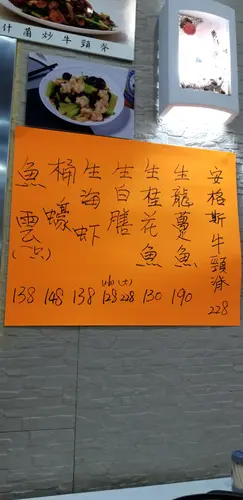 什菌炒牛頸脊
安格斯牛頸脊 228
生龍躉魚 190
生桂花魚 130
生白膳 (小) 128 (大) 228
生海虾 138
桶蠔 148
魚雲 138